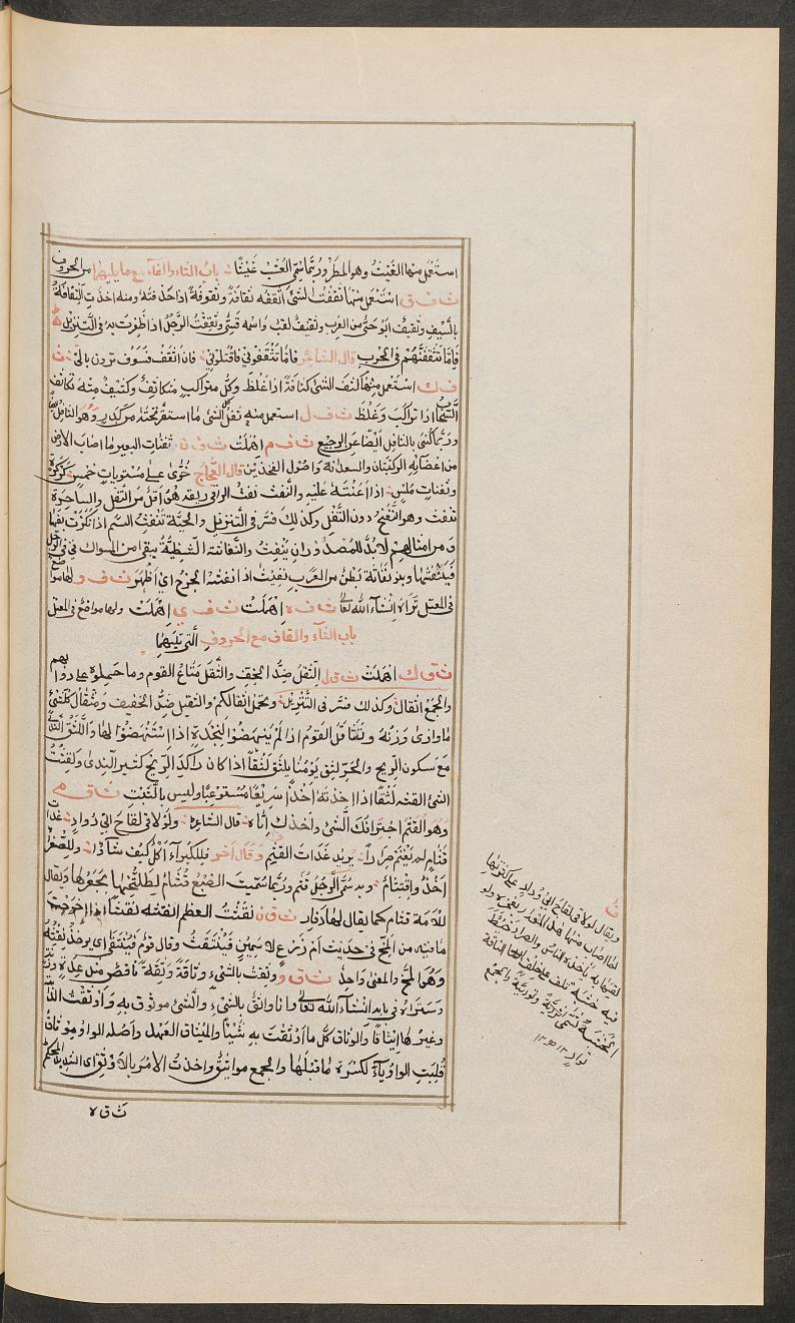 استعمل منها الغَيْثُ وهو المطر وربّما سُمّى العُشْب غَيْثًا باب الثاء والفاء مع ما يليهما من الحروف
ث ف ق استعمل منها ثقفتُ الشئ أثقفه ثقافةً وثقوفةً اذا حذقته ومنه اخذت الثِقافةُ
بالسَّيْفِ وثقيفُ ابو حىّ من العرب وثقيفُ لقبُ واسمه قَسِىٌّ وثقِفْتُ الرَّجُلَ اذا ظَفِرْتَ به وفى التَّنْزِيلِ
فَإمَّا تَثْقَفَنَّهُمْ فى الحرب قال الشاعر فامّا تَثْقَفُونى فاقتلونى فان اثقف فسوف ترون بالى ث
ف ك استعمل منها كثف الشئ كثافةً اذا غلظ وكلّ متراكبٍ متكاثفٌ وكثيفٌ منه تكاثف
السَّحَابُ اذا تراكب وغلظ ث ف ل استعمل منه ثُفْلُ الشئ ما استقرّ تحته من كَدَرٍ وهو الثافل
وربّما كُنّى بالثافل ايضا عن الرجيع ث ف م اهملت ث ف ن ثفنات البعير ما اصاب الارض
من اعضائه الركبتان والسعدانة واصول الفخذين قال العجّاج خوّى على مستويات خمس كِرْكِرةٍ
وثفناتٍ مُلْسِ اذا اعنته عليه والنَّفْث نفث الراقى ريقه هى اقلّ من التفل والساحرة
تنفث وهو النَّفْخُ دون التَّفْلِ وكذلك فسّر فى التنزيل والحيّة تنفث السّم اذا نكزت بفمها
ومن امثالهم لا بُدَّ للمصدُورِ ان يَنْفِثَ والنُّفاثة الشظيّةُ يبقى من السواك فى فى الرجل
فينفثها وبنو نُفاثة بطنٌ من العرب اذا نفثه الجرح اى اظهر ث ف و لها مواضع
فى المعتل تراه ان شاء الله تعالى ث ف ه اهملت ث ف ي اهملت ولها مواضع فى المعتل
باب الثاء والقاف مع الحروف التى تليهما
ث ق ك اهملت ث ق ل الثِّقل ضدّ الخِفّ والثَّقَل متاع القوم وما حملوه على دوابهم
والجمع اثقال وكذلك فسّر فى التنزيل وتحمل اثقالكم والثقيل ضدّ الخفيف ومثقال كلّ شئ
ما وازى وزنه وتثاقل القوم اذا لم ينهضوا لنجدةٍ اذا استنهضوا لها واللَّثَق النَّدَى
مع سكون الريح والحرّ لثق يومنا يلثق لثقًا اذا كان راكد الريح كثير الندى ولقثتُ
الشئ القثه لقثًا اذا اخذته اخذًا سريعًا مستوعبًا وليس بالثبت ث ق م
وهو القثم اجترافك الشئ واخذك إيّاه قال الشاعر ولولا فى لقاح ابى دواد غدت
قثامٍ لم يغنم صرادًا يريد غدات القثيم وقال آخر فللكبراء اكلٌ كيف شاؤا وللصغراء
اخذٌ واقتثامٌ وبه سمّى الرجل قثم وربّما سمّيت الضبع قثام لطلخها بجعرها ويقال
للأمة قثام كما يقال لها دفار ث ق ن نقثتُ العظم انقثه نقثًا اذا اخرجت
ما فيه من المخّ فى حديث ام زرع لا سمين فينتقث وقال قوم فينتقى اى يؤخذ نقيه
وهو المخّ والمعنى واحد ث ق و وثقت بالشئ وثاقةً وثقةً ناقص مثل عِدة
وستراه فى بابه ان شاء الله تعالى وانا واثق بالشئ والشئ موثوق به واوثقت الدابّة
وغيرها ايثاقًا والوثاق كلّ ما اوثقت به شيئًا والميثاق العهد واصله الواو موثاق
قلبت الواو ياءً لكسرة ما قبلها والجمع مواثيق واخذت الأمر بالاوثق اى الشديد المحكم
ث ق ه
ث
ويقال لولا فى لقاح ابى دواد على كثرتها